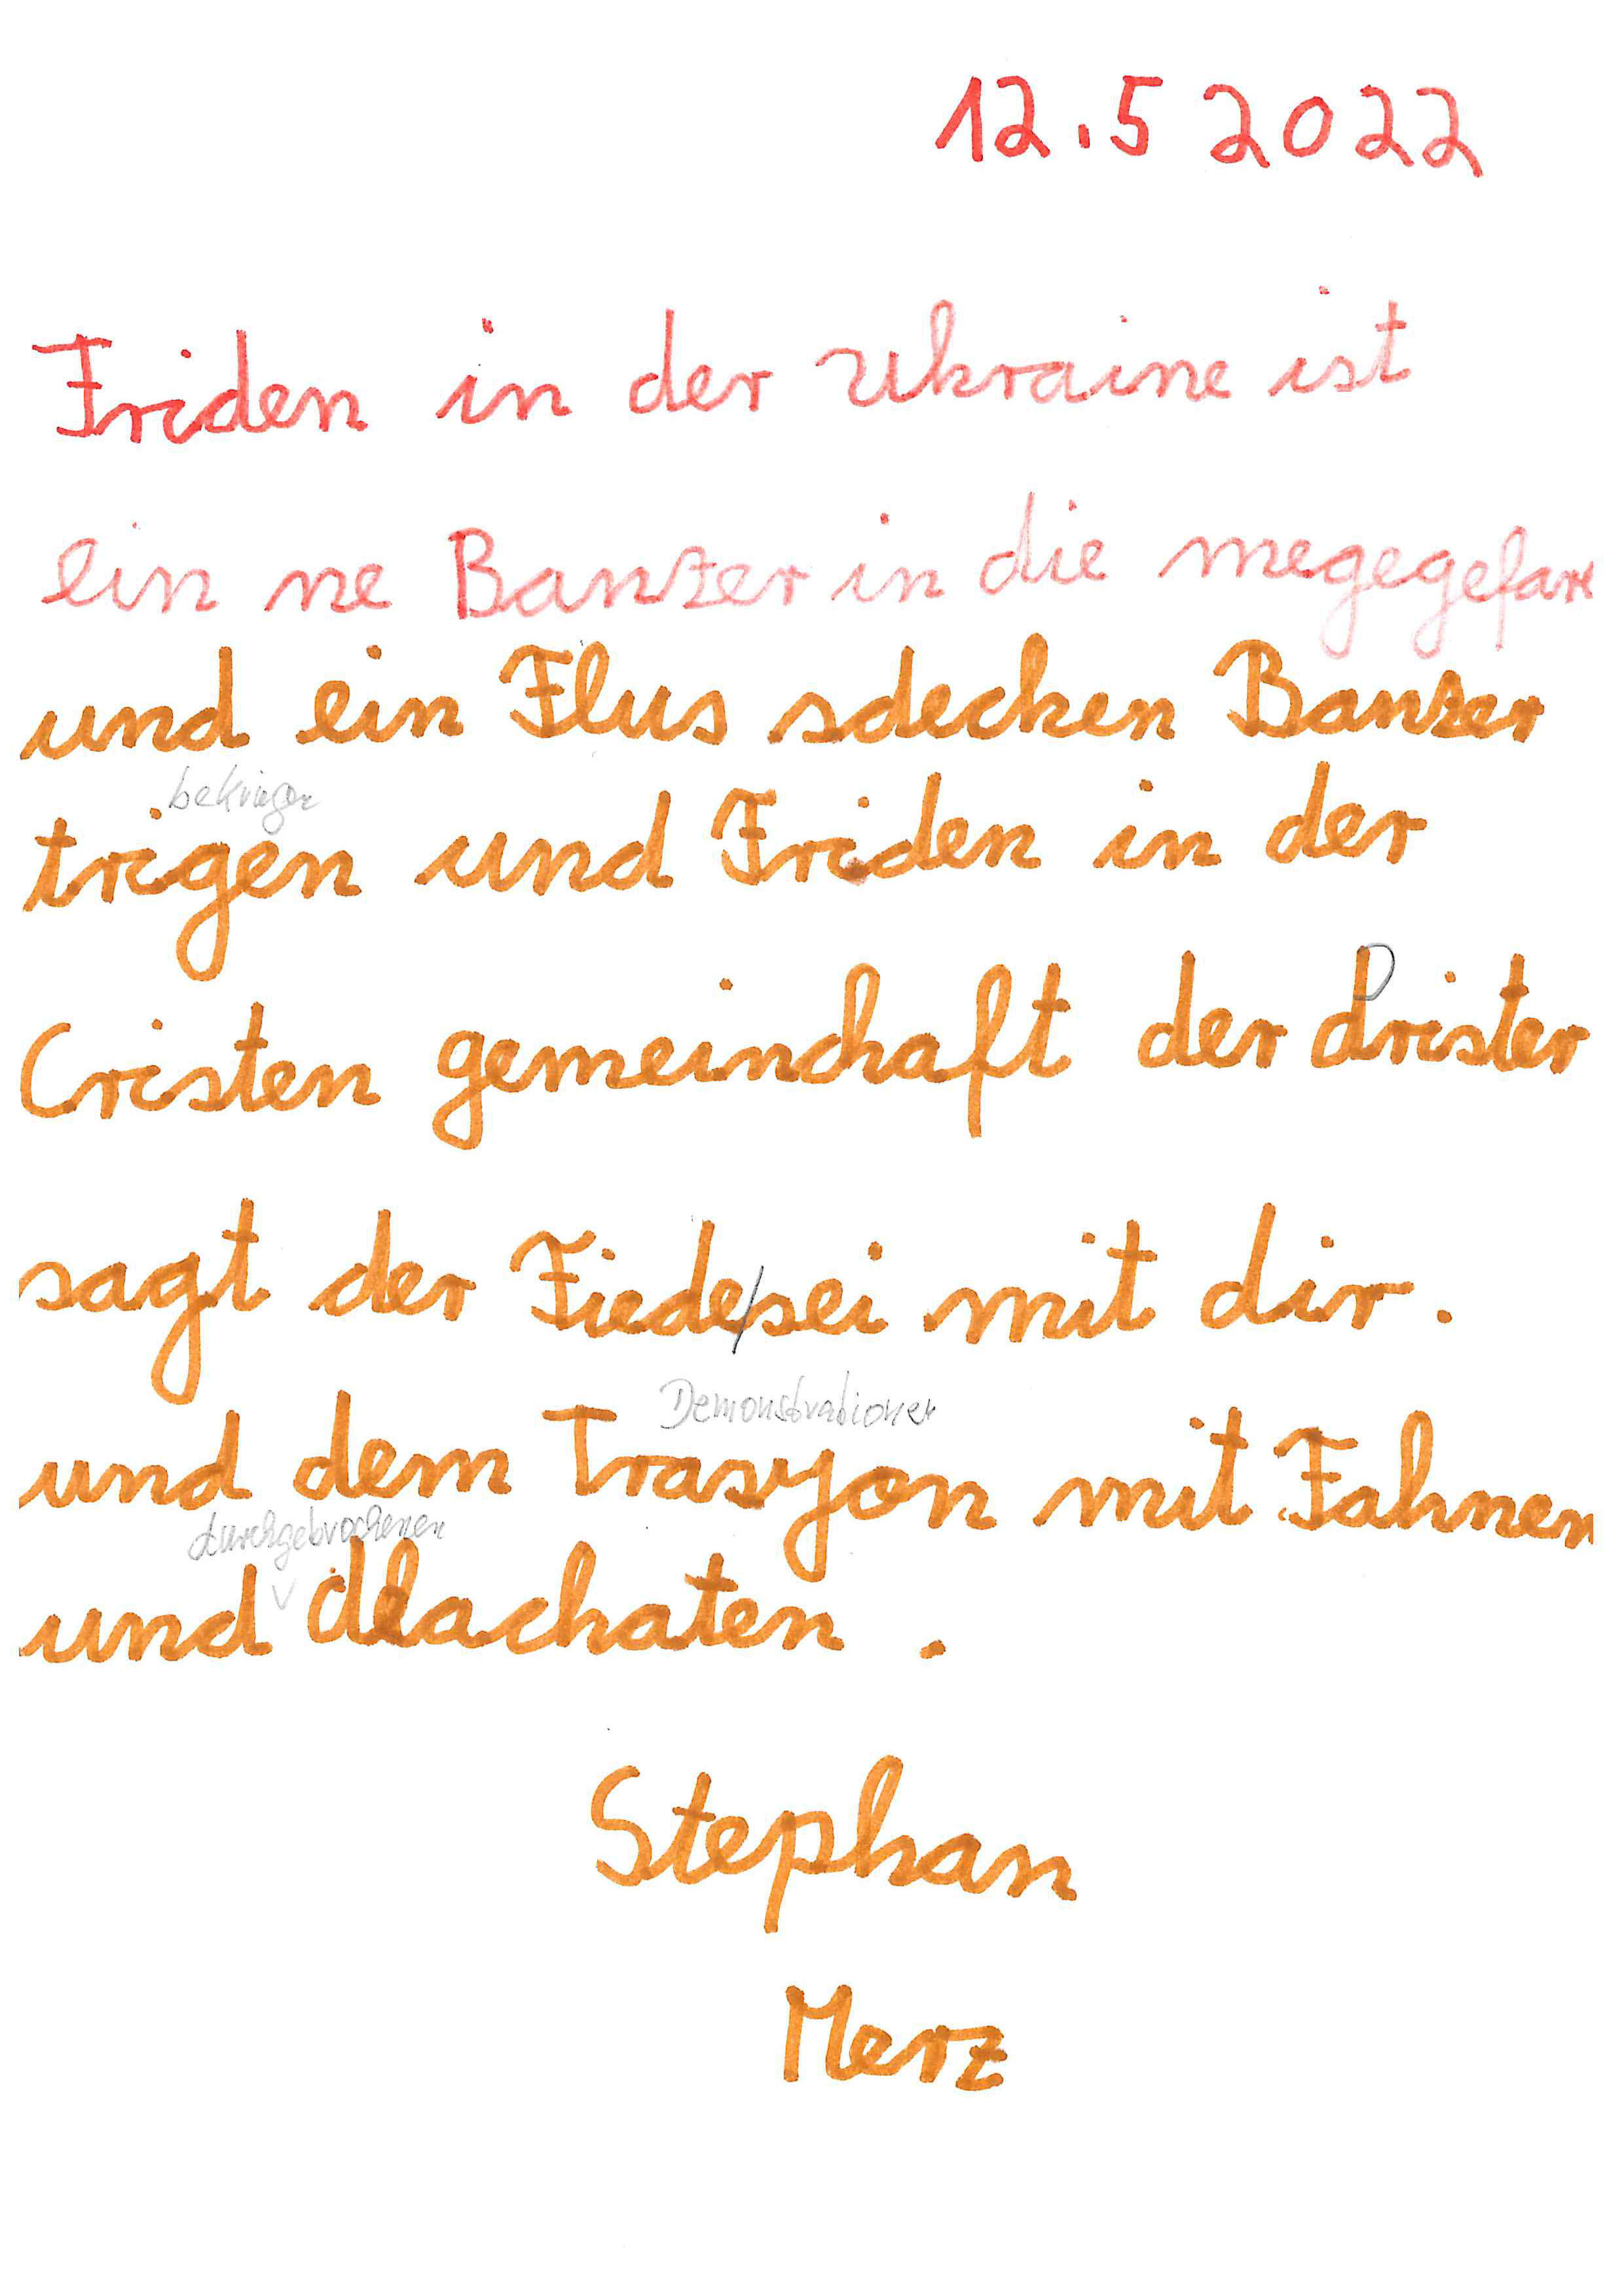 12.5 2022
Friden in der Ukraine ist
ein ne Banzer in die megegefare
und ein Flus sdecken Banzer
bekriegen
trigen und Friden in der
Cristen gemeinchaft der Prister
sagt der Fiede/sei mit dir.
Demonstrationen
und dem Trasyon mit Fahnen
durchgebrochenen
und dlachaten .
Stephan
Merz